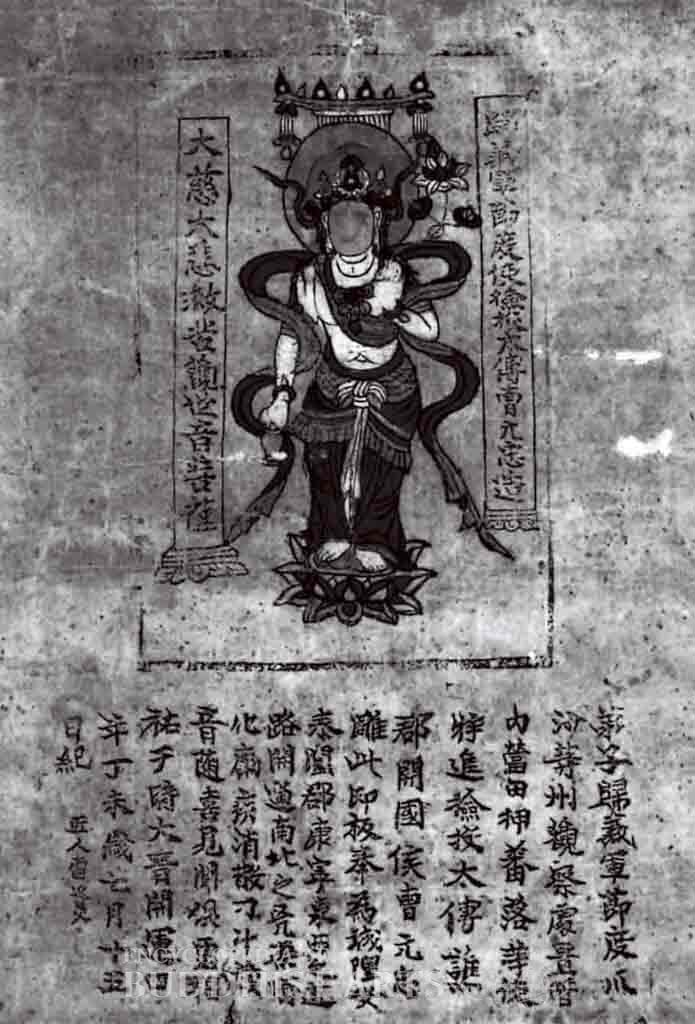 歸義軍節度使檢校太傅曹元忠造
大慈大悲救苦觀世音菩薩
弟子歸義軍節度瓜
沙等州觀察處置管
內營田押蕃落等使
特進檢校太傅譙
郡開國侯曹元忠
雕此印板奉為城隍安
泰闔郡康寧東西之道
路開通南北之兇渠順
化癘疾消散刁斗藏
音隨喜見聞俱霑福
祐于時大晉開運四
年丁未歲七月十五
日紀 匠人雷延美
BUDDHIST ARTS